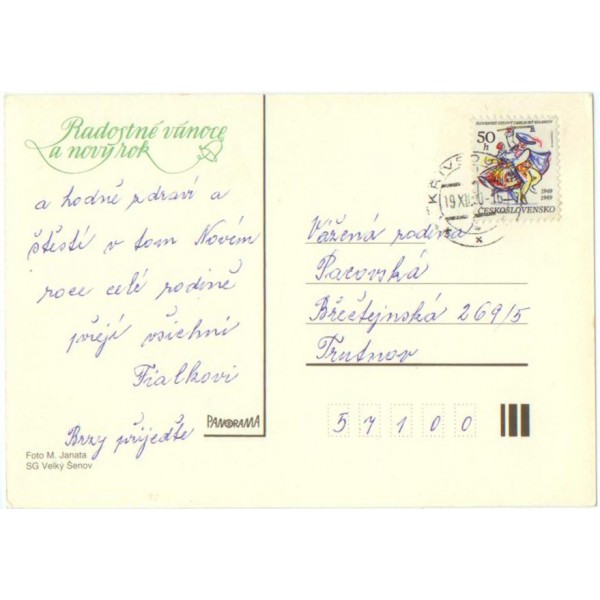 Radostné vánoce
a nový rok
a hodně zdraví a
štěstí v tom Novém
roce celé rodině
přejí všichni
Fialkovi
Brzy přijeďte
PANORAMA
Foto M. Janata
SG Velký Šenov
50
h
1949
1989
ČESKOSLOVENSKO
Vážená rodina
Pacovská
Břečtejnská 269/5
Trutnov
57100